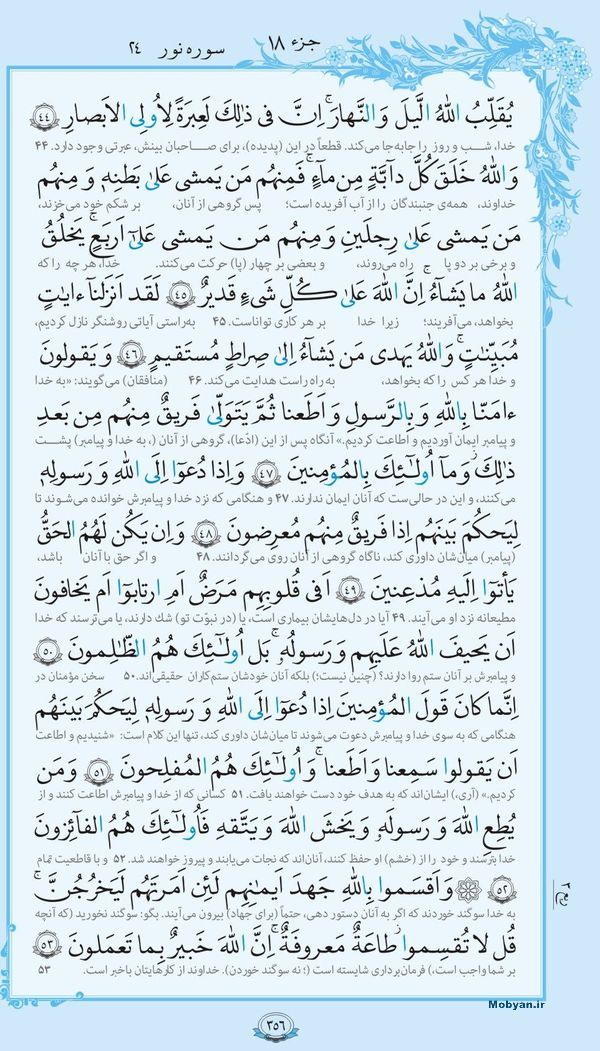 جزء ۱۸
سوره نور ۲۴
يُقَلِّبُ اللهُ الَّيلَ وَالنَّهارَ ۚ اِنَّ فى ذٰلِكَ لَعِبرَةً لِاُولِى الاَبصارِ ۴۴
خدا، شب و روز را جابه‌جا می‌کند. قطعاً در این (پدیده)، برای صاحبان بینش، عبرتی وجود دارد. ۴۴
وَاللهُ خَلَقَ كُلَّ دآبَّةٍ مِن مآءٍ ۖ فَمِنهُم مَن يَمشى عَلىٰ بَطنِهٖ وَ مِنهُم
خداوند، همه‌ی جنبندگان را از آب آفریده است؛ پس گروهی از آنان، بر شکم خود می‌خزند،
مَن يَمشى عَلىٰ رِجلَينِ وَ مِنهُم مَن يَمشى عَلىٰٓ اَربَعٍ ۚ يَخلُقُ
و برخی بر دو پا راه می‌روند، و بعضی بر چهار (پا) حرکت می‌کنند. خدا، هر چه را که
اللهُ ما يَشآءُ ۚ اِنَّ اللهَ عَلىٰ كُلِّ شَىءٍ قَديرٌ ۴۵ لَقَد اَنزَلنآ ءايٰتٍ
بخواهد، می‌آفریند؛ زیرا خدا بر هر کاری تواناست. ۴۵ به‌راستی آیاتی روشنگر نازل کردیم،
مُبَيِّنٰتٍ ۚ وَاللهُ يَهدى مَن يَشآءُ اِلىٰ صِراطٍ مُستَقيمٍ ۴۶ وَ يَقولونَ
و خدا هر کس را که بخواهد، به راه راست هدایت می‌کند. ۴۶ (منافقان) می‌گویند: «به خدا
ءامَنّا بِاللهِ وَ بِالرَّسولِ وَ اَطَعنا ثُمَّ يَتَوَلّىٰ فَريقٌ مِنهُم مِن بَعدِ
و پیامبر ایمان آوردیم و اطاعت کردیم.» آنگاه پس از این (ادّعا)، گروهی از آنان (، به خدا و پیامبر) پشت
ذٰلِكَ ۚ وَ مآ اُولٰٓئِكَ بِالمُؤمِنينَ ۴۷ وَ اِذا دُعوٓا اِلَى اللهِ وَ رَسولِهٖ
می‌کنند، و این در حالی‌ست که آنان ایمان ندارند. ۴۷ و هنگامی که نزد خدا و پیامبرش خوانده می‌شوند تا
لِيَحكُمَ بَينَهُم اِذا فَريقٌ مِنهُم مُعرِضونَ ۴۸ وَ اِن يَكُن لَهُمُ الحَقُّ
(پیامبر) میان‌شان داوری کند، ناگاه گروهی از آنان روی می‌گردانند. ۴۸ و اگر حق با آنان باشد،
يَأتوٓا اِلَيهِ مُذعِنينَ ۴۹ اَفى قُلوبِهِم مَرَضٌ اَمِ ارتابوٓا اَم يَخافونَ
مطیعانه نزد او می‌آیند. ۴۹ آیا در دل‌هایشان بیماری است، یا (در نبوّت تو) شك دارند، یا می‌ترسند که خدا
اَن يَحيفَ اللهُ عَلَيهِم وَ رَسولُهٗ ۚ بَل اُولٰٓئِكَ هُمُ الظّٰلِمونَ ۵۰
و پیامبرش بر آنان ستم روا دارند؟ (چنین نیست؛) بلکه آنان خودشان ستم‌کاران حقیقی‌اند. ۵۰ سخن مؤمنان در
اِنَّما كانَ قَولَ المُؤمِنينَ اِذا دُعوٓا اِلَى اللهِ وَ رَسولِهٖ لِيَحكُمَ بَينَهُم
هنگامی که به سوی خدا و پیامبرش دعوت می‌شوند تا میان‌شان داوری کند، تنها این کلام است: «شنیدیم و اطاعت
اَن يَقولوا سَمِعنا وَ اَطَعنا ۚ وَ اُولٰٓئِكَ هُمُ المُفلِحونَ ۵۱ وَ مَن
کردیم.» (آری،) ایشان‌اند که به هدف خود دست خواهند یافت. ۵۱ کسانی که از خدا و پیامبرش اطاعت کنند و از
يُطِعِ اللهَ وَ رَسولَهٗ وَ يَخشَ اللهَ وَ يَتَّقهِ فَاُولٰٓئِكَ هُمُ الفآئِزونَ
خدا بترسند و خود را از (خشم) او حفظ کنند، آنان‌اند که نجات می‌یابند و پیروز خواهند شد. ۵۲ و با قاطعیت تمام
۵۲ وَ اَقسَموا بِاللهِ جَهدَ اَيمٰنِهِم لَئِن اَمَرتَهُم لَيَخرُجُنَّ ۖ
به خدا سوگند خوردند که اگر به آنان دستور دهی، حتماً (برای جهاد) بیرون می‌آیند. بگو: سوگند نخورید (که آنچه
قُل لا تُقسِموا ۖ طاعَةٌ مَعروفَةٌ ۚ اِنَّ اللهَ خَبيرٌ بِما تَعمَلونَ ۵۳
بر شما واجب است،) فرمان‌برداری شایسته است (؛ نه سوگند خوردن). خداوند از کارهایتان باخبر است. ۵۳
۳۵۶
Mobyan.ir